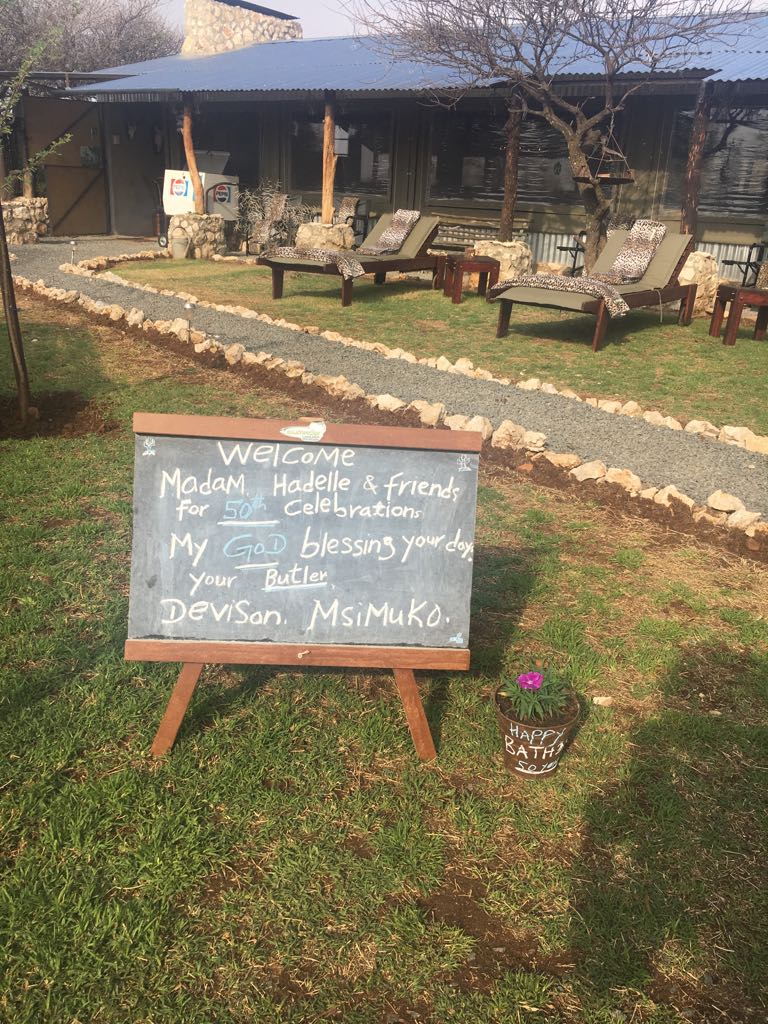 PEPSI
PEPSI
Welcome
Madam. Hadelle & friends
for 50th Celebrations
My GOD blessing your day.
your Butler,
DeviSon. MsiMuKo.
HAPPY
BATH
50